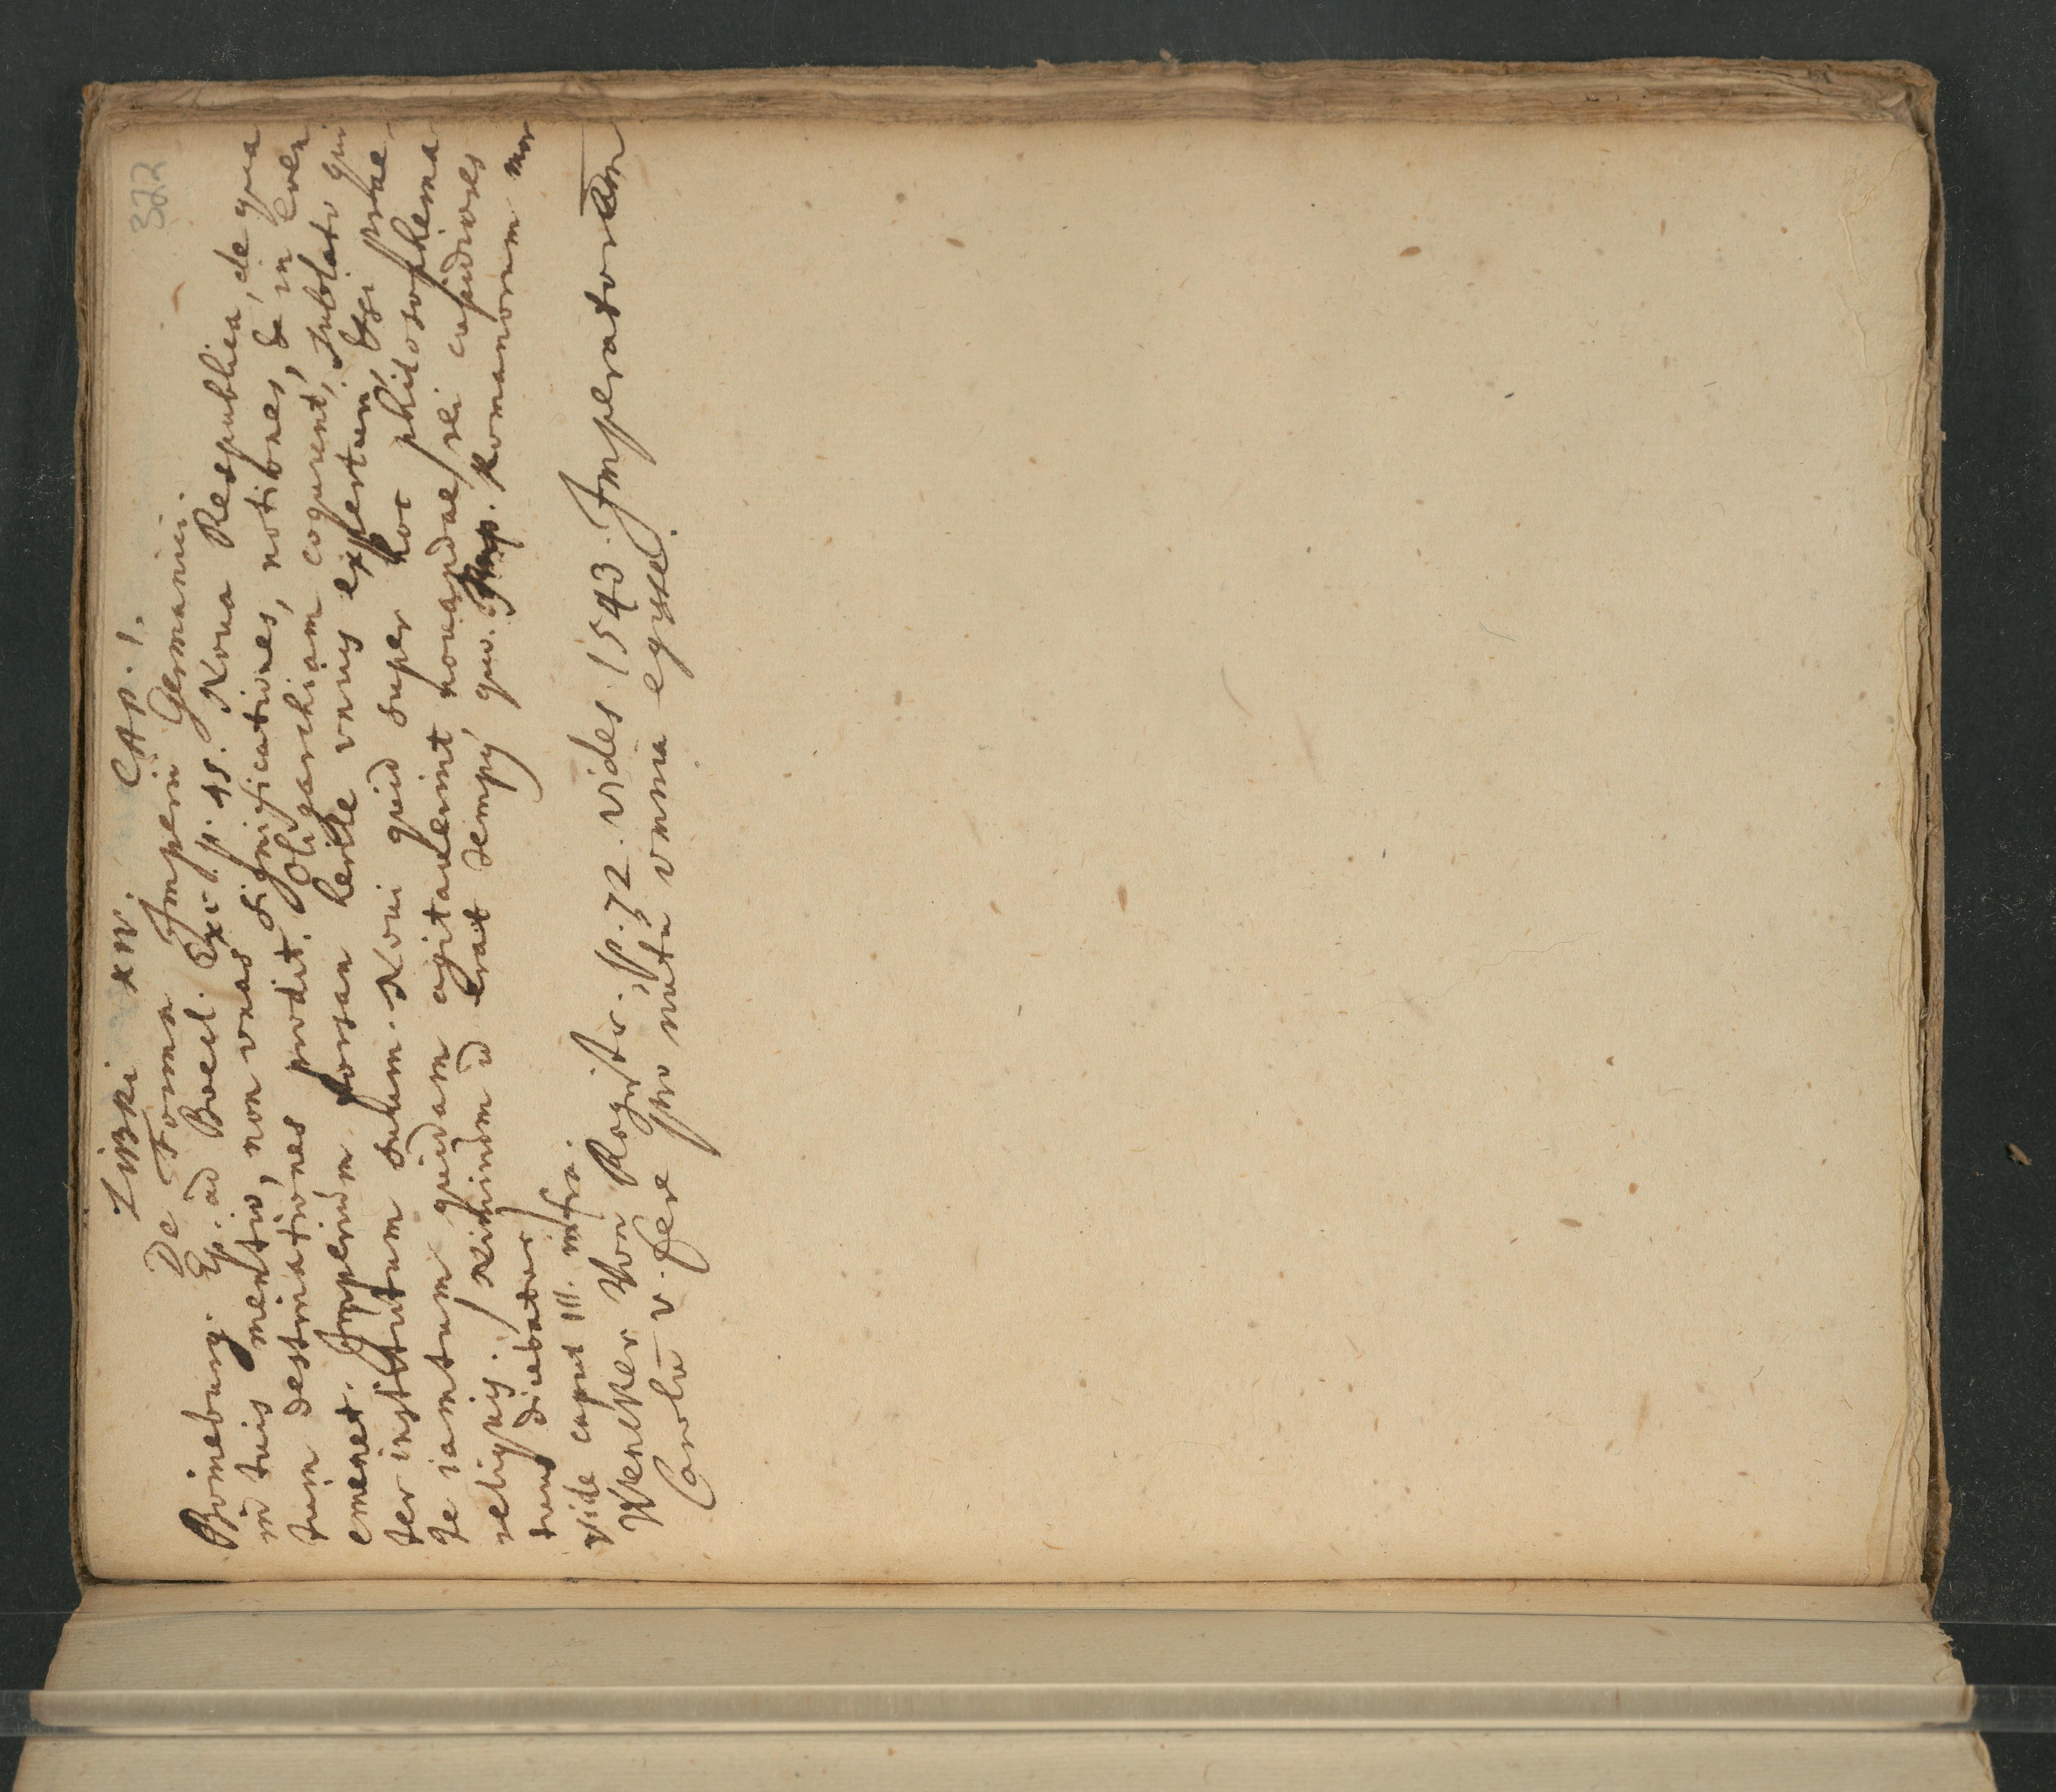 322
LIBRI XIV. CAP. 1.
De Forma Imperii Germanici.
Boineburg. Ep. ad Boecl. Exc. p. 45. Noua Respublica, de qua
in tuis mentio, non vnas significationes, notiones, & in euen
tum destinationes prodit. Oligarchiam coquerent, sublato qui
emeret. Imperium forsan herile vnus expertum, Etsi prae
ter institutum suum. Noui quid super hoc philosophema
te iamtum quidam agitauerint nouandae rei cupidiores
reliquis. Nimirum id erat semper, quo Imp. Romanorum mor
tuus dicebatur
vide caput III. infra.
Wencker Von Regstr. p. 72. vides 1543. Imperatorem
Carolū V. fere pro nutu omnia egisse.